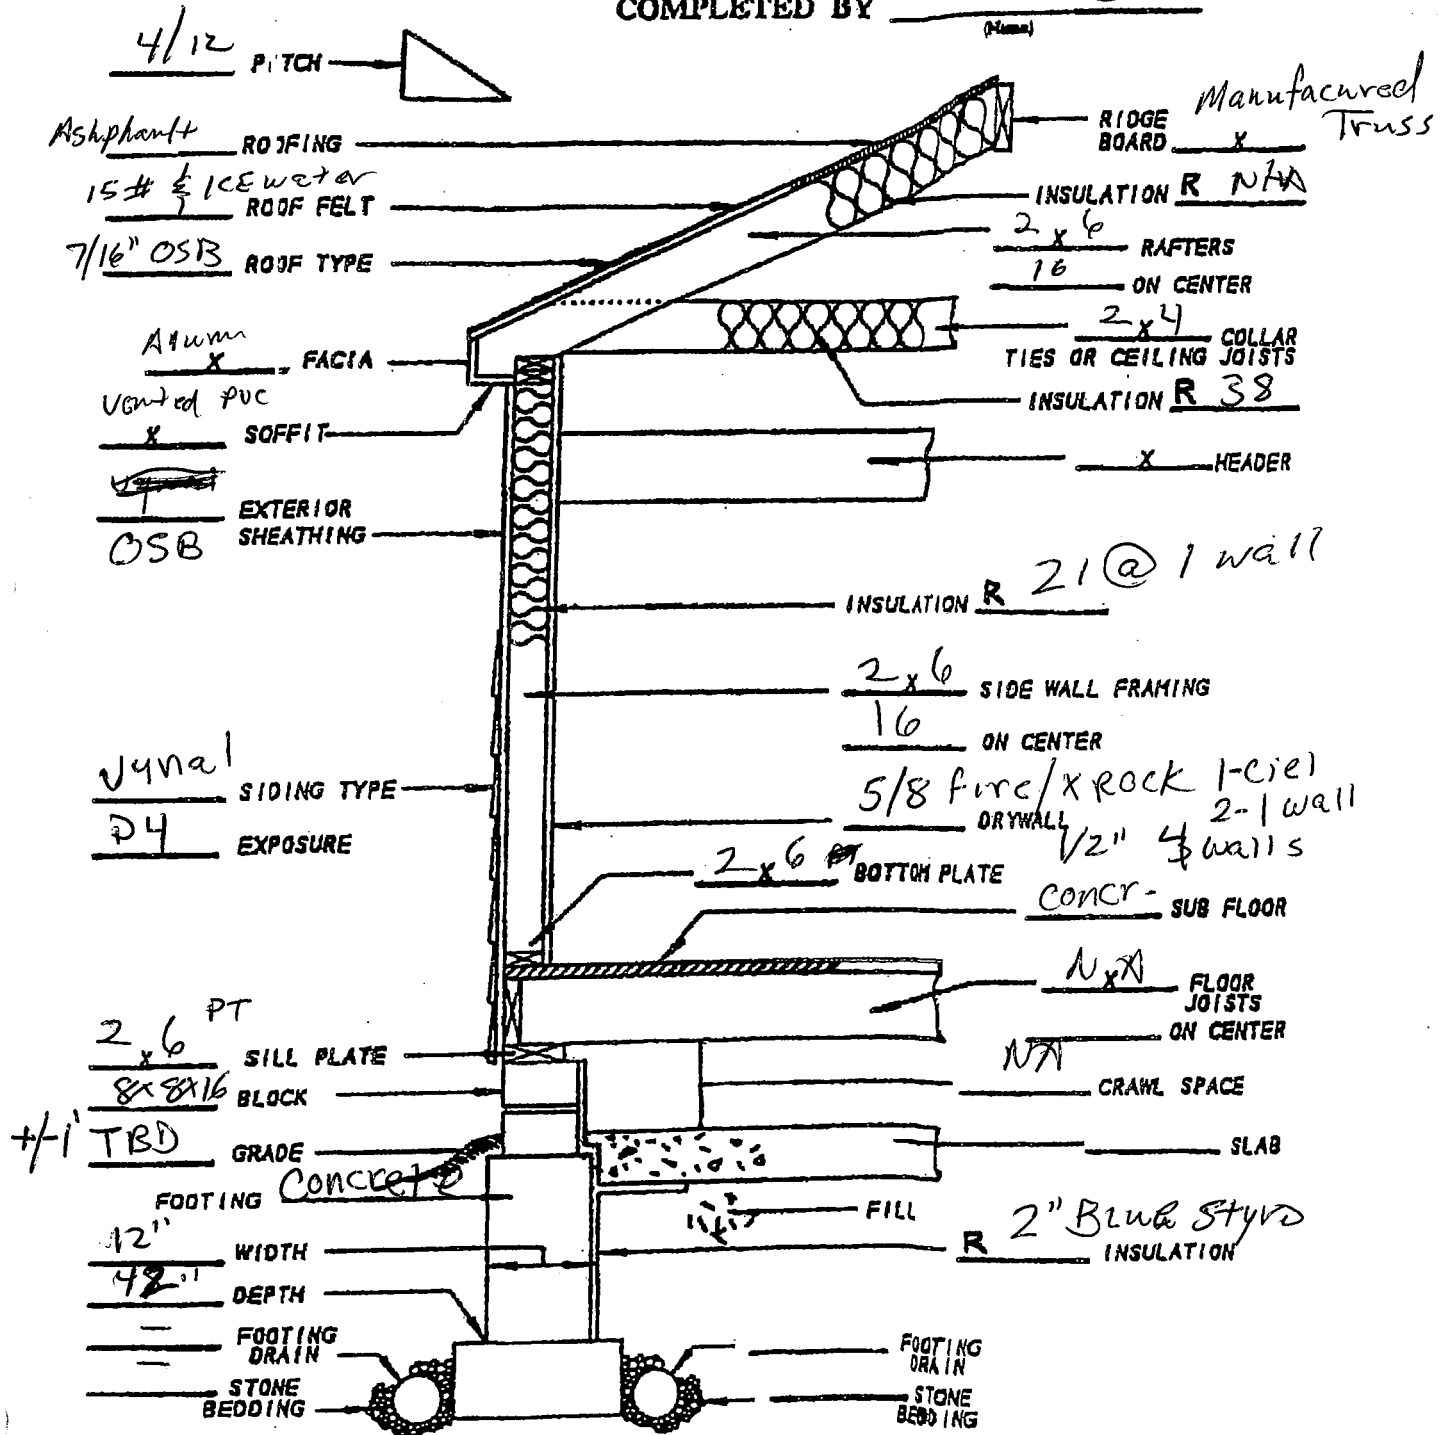 COMPLETED BY
(Name)
4/12 PITCH
Ashphault ROOFING
15# & ICE water ROOF FELT
7/16" OSB ROOF TYPE
Alum x FACIA
Vented PVC x SOFFIT
EXTERIOR
OSB SHEATHING
Vynal SIDING TYPE
D4 EXPOSURE
2 x 6 PT SILL PLATE
8x8x16 BLOCK
+/-1' TBD GRADE
FOOTING Concrete
12" WIDTH
DEPTH
— FOOTING
DRAIN
— STONE
BEDDING
RIDGE
BOARD x Manufacured
Truss
INSULATION R N/A
2 x 6 RAFTERS
16 ON CENTER
2x4 COLLAR
TIES OR CEILING JOISTS
INSULATION R 38
x HEADER
INSULATION R 21 @ 1 wall
2 x 6 SIDE WALL FRAMING
16 ON CENTER
5/8 fire/x ROCK 1-ciel
DRYWALL 2-1 wall
1/2" walls
2 x 6 BOTTOM PLATE
concr- SUB FLOOR
N x A FLOOR
JOISTS
ON CENTER
NA CRAWL SPACE
SLAB
FILL
R 2" Blue Styro INSULATION
FOOTING
DRAIN
STONE
BEDDING